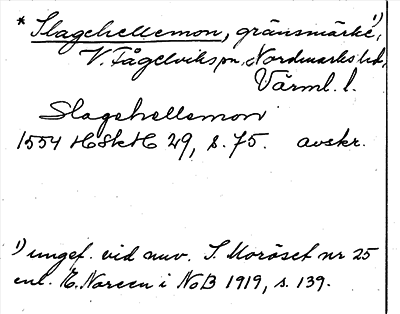 * Slagehellemon, gränsmärke¹⁾,
V. Fågelviks sn, Nordmarks hd,
Värml. l.
Slagehellemon
1554 HSkH 29, s. 75. avskr.
¹⁾ ungef. vid nuv. S. Moröset nr 25
enl. E. Noreen i NoB 1919, s. 139.